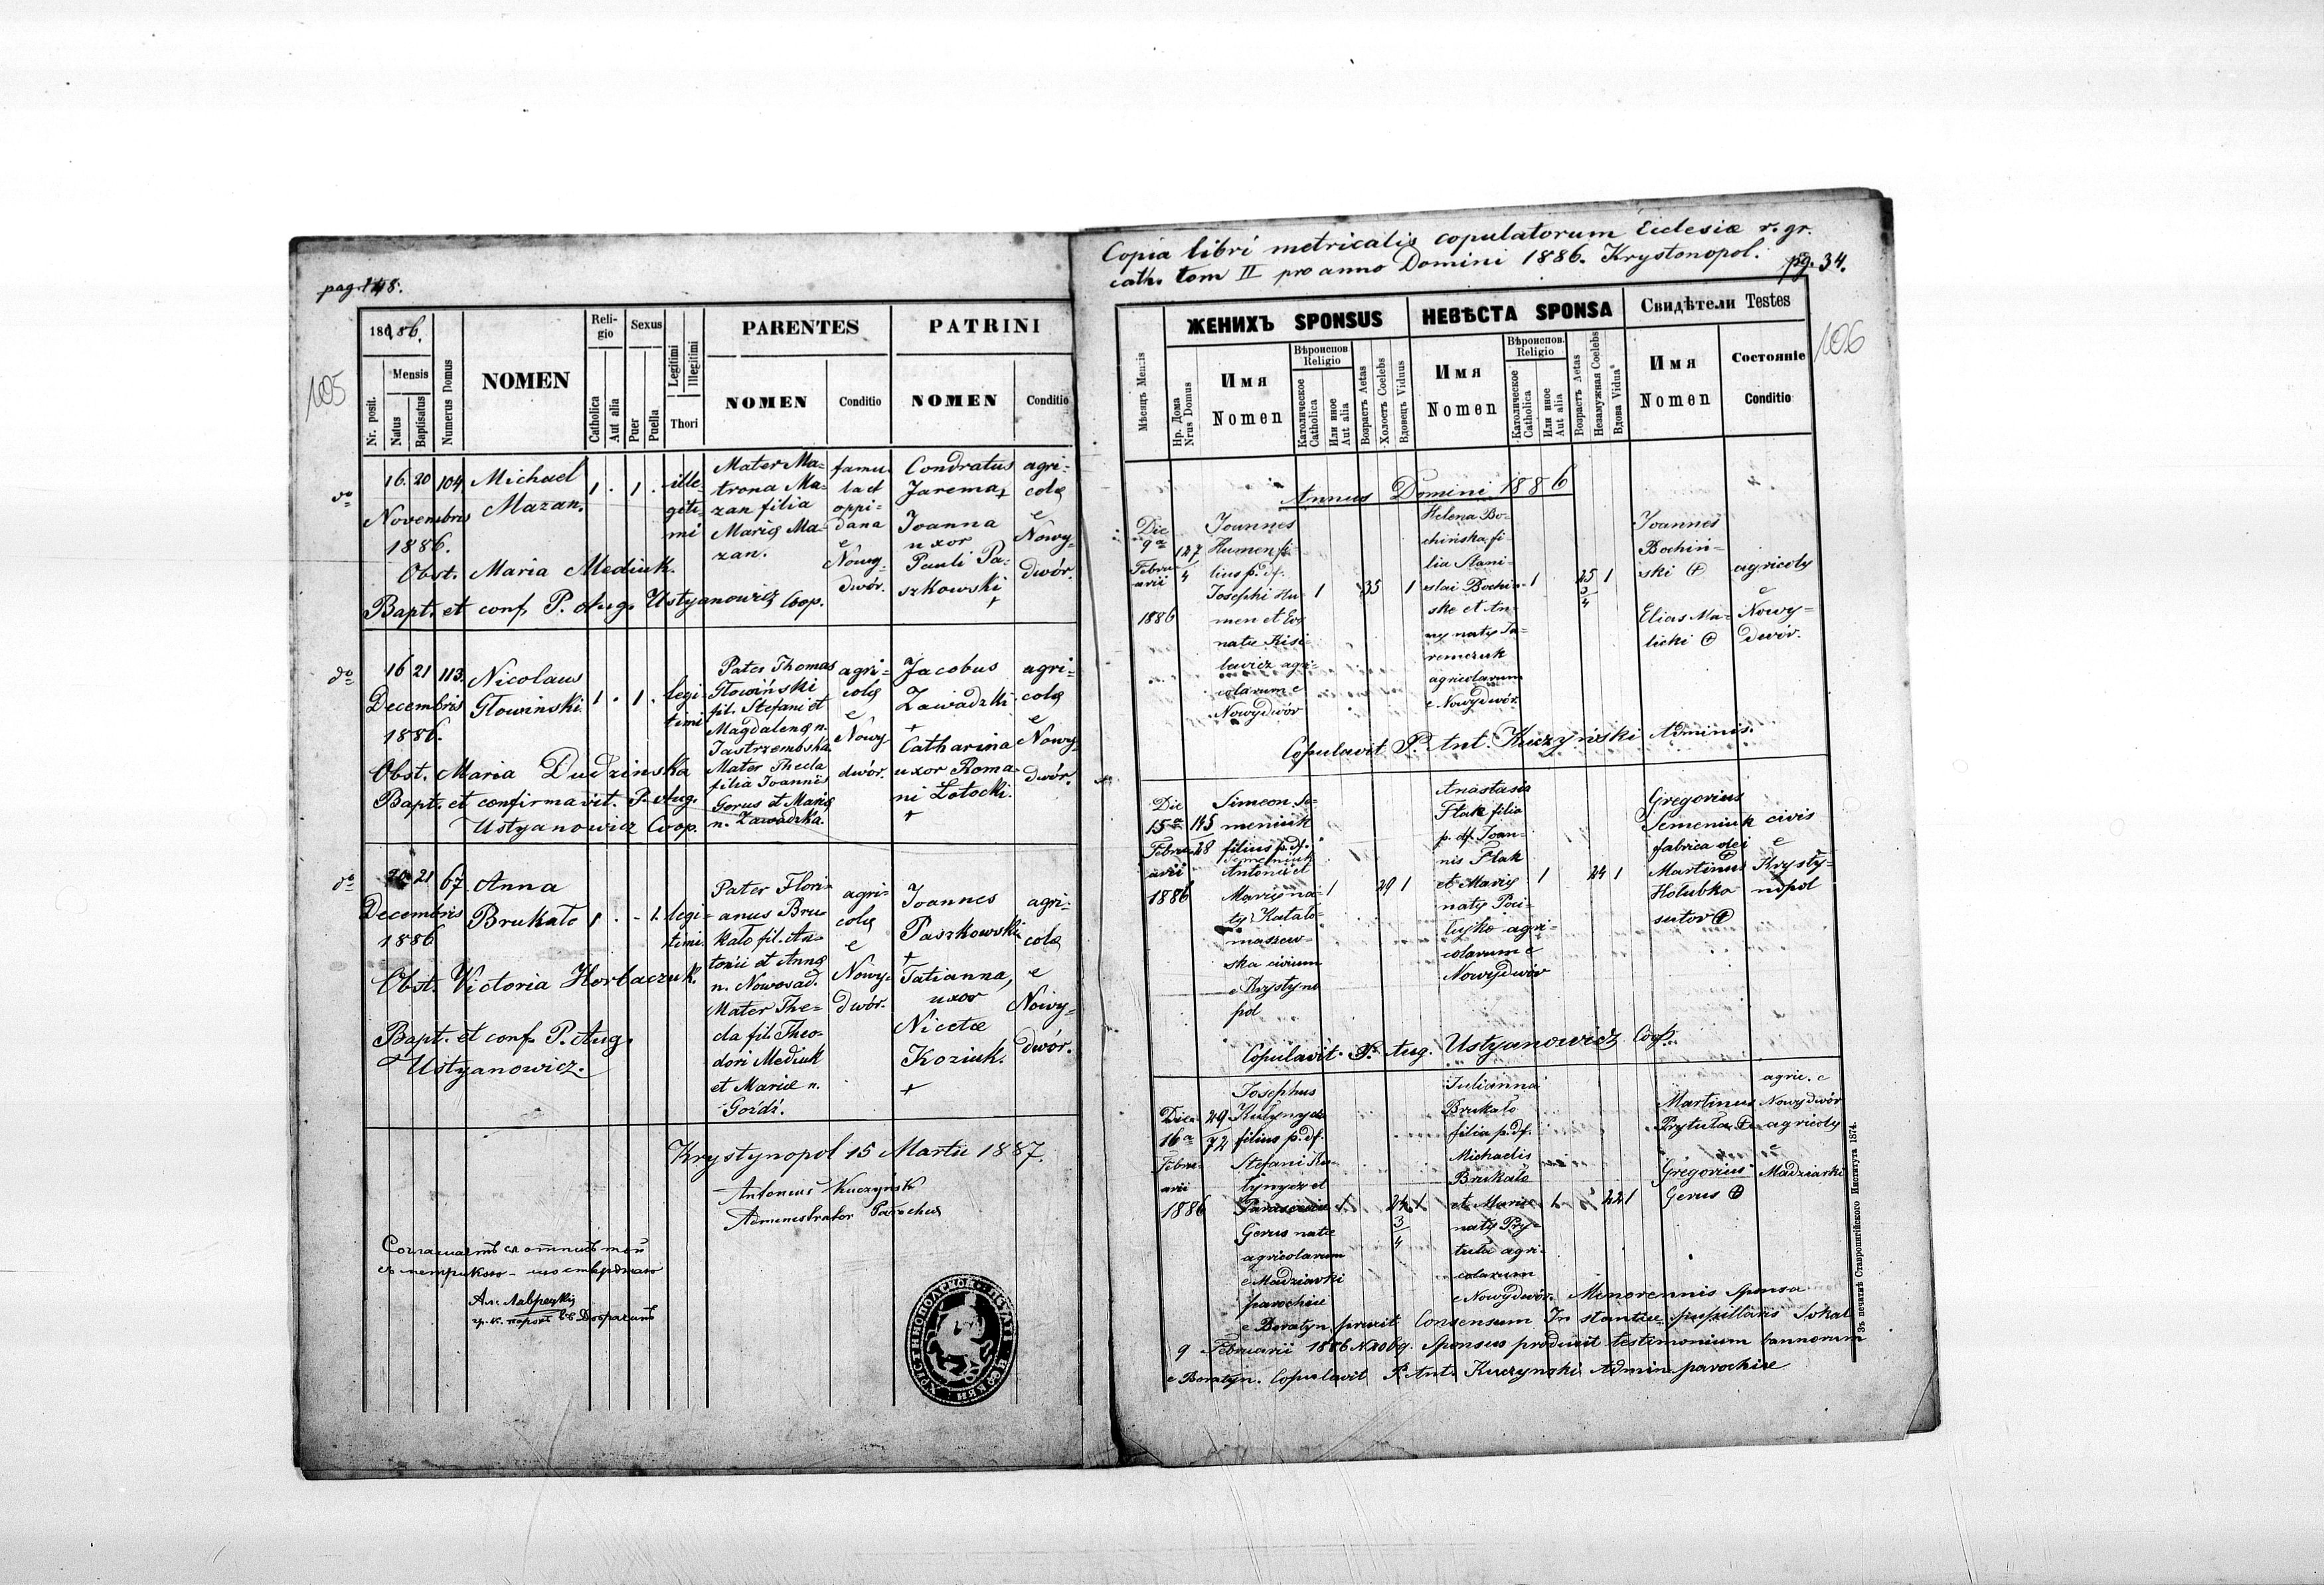 pag. 148.
105
1886.
Nr. posit.
Mensis
Natus
Baptisatus
Numerus Domus
NOMEN
Reli-
gio
Catholica
Aut alia
Sexus
Puer
Puella
Legitimi
Illegitimi
Thori
PARENTES
NOMEN
Conditio
PATRINI
NOMEN
Conditio
16. 20 104
Novembris
1886.
Michael
Mazan.
1 . 1 .
ille-
giti-
mi
Mater Ma-
trona Ma-
zan filia
Marię Ma-
zan.
famu
la et
oppi-
dana
e
Nowy-
dwór.
Condratus
Jarema +
Joanna
uxor
Pauli Pa-
szkowski
+
agri-
colę
e
Nowy-
dwór.
Obst. Maria Mediuk.
Bapt. et conf. P. Aug. Ustyanowicz Coop.
16 21 113.
Decembris
1886.
Nicolaus
Głowinski.
1 . 1 .
legi
timi
Pater Thomas
Głowiński
fil. Stefani et
Magdalenę n.
Jastrzembska.
Mater Thecla
filia Joannis
Gerus et Marię
n. Zawadzka.
agri-
colę
e
Nowy-
dwór.
Jacobus
Zawadzki
+
Catharina
uxor Roma-
ni Łotocki.
+
agri-
colę
e
Nowy
dwór.
Obst. Maria Dudzinska
Bapt. et confirmavit. P. Aug.
Ustyanowicz Coop.
20 21 67
Decembris
1886
Anna
Brukało
1 . - 1.
legi-
timi.
Pater Flori-
anus Bru-
kało fil. An-
tonii et Annę
n. Nowosad.
Mater The-
cla fil. Theo-
dori Mediuk
et Mariæ n.
Goździ.
agri-
colę
e
Nowy-
dwór.
Joannes
Paszkowski
+
Tatianna,
uxor
Nicetæ
Koziuk.
+
agri-
colę
e
Nowy-
dwór.
Obst. Victoria Horbaczuk.
Bapt. et conf. P. Aug.
Ustyanowicz.
Krystynopol 15 Martii 1887.
Antonius Kuczyński
Administrator Parochus
Copia libri metricalis copulatorum Ecclesiæ r. gr.
cath. tom II pro anno Domini 1886. Krystonopol. pg. 34.
106
Мѣсяць Mensis
ЖЕНИХЪ SPONSUS
Нр. Дома
Nrus Domus
Имя
Nomen
Вѣроиспов.
Religio
Католическое
Catholica
Или иное
Aut alia
Возрастъ Aetas
Холостъ Coelebs
Вдовецъ Viduus
НЕВѢСТА SPONSA
Имя
Nomen
Вѣроиспов.
Religio
Католическое
Catholica
Или иное
Aut alia
Возрастъ Aetas
Незамужная Coelebs
Вдова Vidua
Свидѣтели Testes
Имя
Nomen
Состояніе
Conditio
Annus Domini 1886
Die
9a
Febru-
arii
1886
127
4
Joannes
Humen fi-
lius p. df.
Josephi Hu-
men et Evę
natę Kisi-
lewicz agri-
colarum e
Nowydwór
1
35
1
Helena Bo-
chińska fi-
lia Stani-
slai Bochiń-
ske et An-
nę natę Ja-
remczuk
agricolarum
e Nowydwór.
1
25
3
4
1
Joannes
Bochiń-
ski
Elias Ma-
licki
agricolę
e
Nowy-
dwór.
Copulavit P. Ant. Kuczyński Adminis.
Die
15a
Febru-
arii
1886
145
28
Simeon Se-
meniuk
filius p. df.
Semeniuk
Antonii et
Marię na-
tę Kala-
maszew-
ska civium
e Krystyno
pol
1
29 1
Anastasia
Flak filia
p. df. Joan-
nis Flak
et Marię
natę Pai-
lujko agri-
colarum e
Nowydwór
1
24 1
Gregorius
Semeniuk
fabrica dei
Martinus
Holubka
sutor
civis
e
Krysty-
nopol
Copulavit P. Aug. Ustyanowicz Coop.
Die
16a
Febru-
arii
1886
29
72
Josephus
Kułynycz
filius p. df.
Stefani Ku-
łynycz et
Parasceviæ
Gerus natæ
agricolarum
e Madziarki
parochiæ
e Boratyn
1
24
3
4
1
Julianna
Brukało
filia p. df.
Michaelis
Brukało
et Marię
natę Pry-
tuła agri-
colarum
e Nowydwór.
1
22 1
Martinus
Prytuła
Gregorius
Gerus
agric. e
Nowydwór
agricolę
e
Madziarki
Minorennis Sponsa
Consensum Instantiæ pupillaris Sokal
9 Februarii 1886 Sponsus produxit testimonium bannorum
e Boratyn. Copulavit P. Ant. Kuczynski Admin. parochiæ
Зъ печатнѣ Ставропигійского Института 1874.